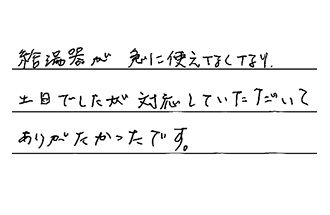 給湯器が 急に使えなくなり、
土日でしたが 対応していただいて
ありがたかったです。